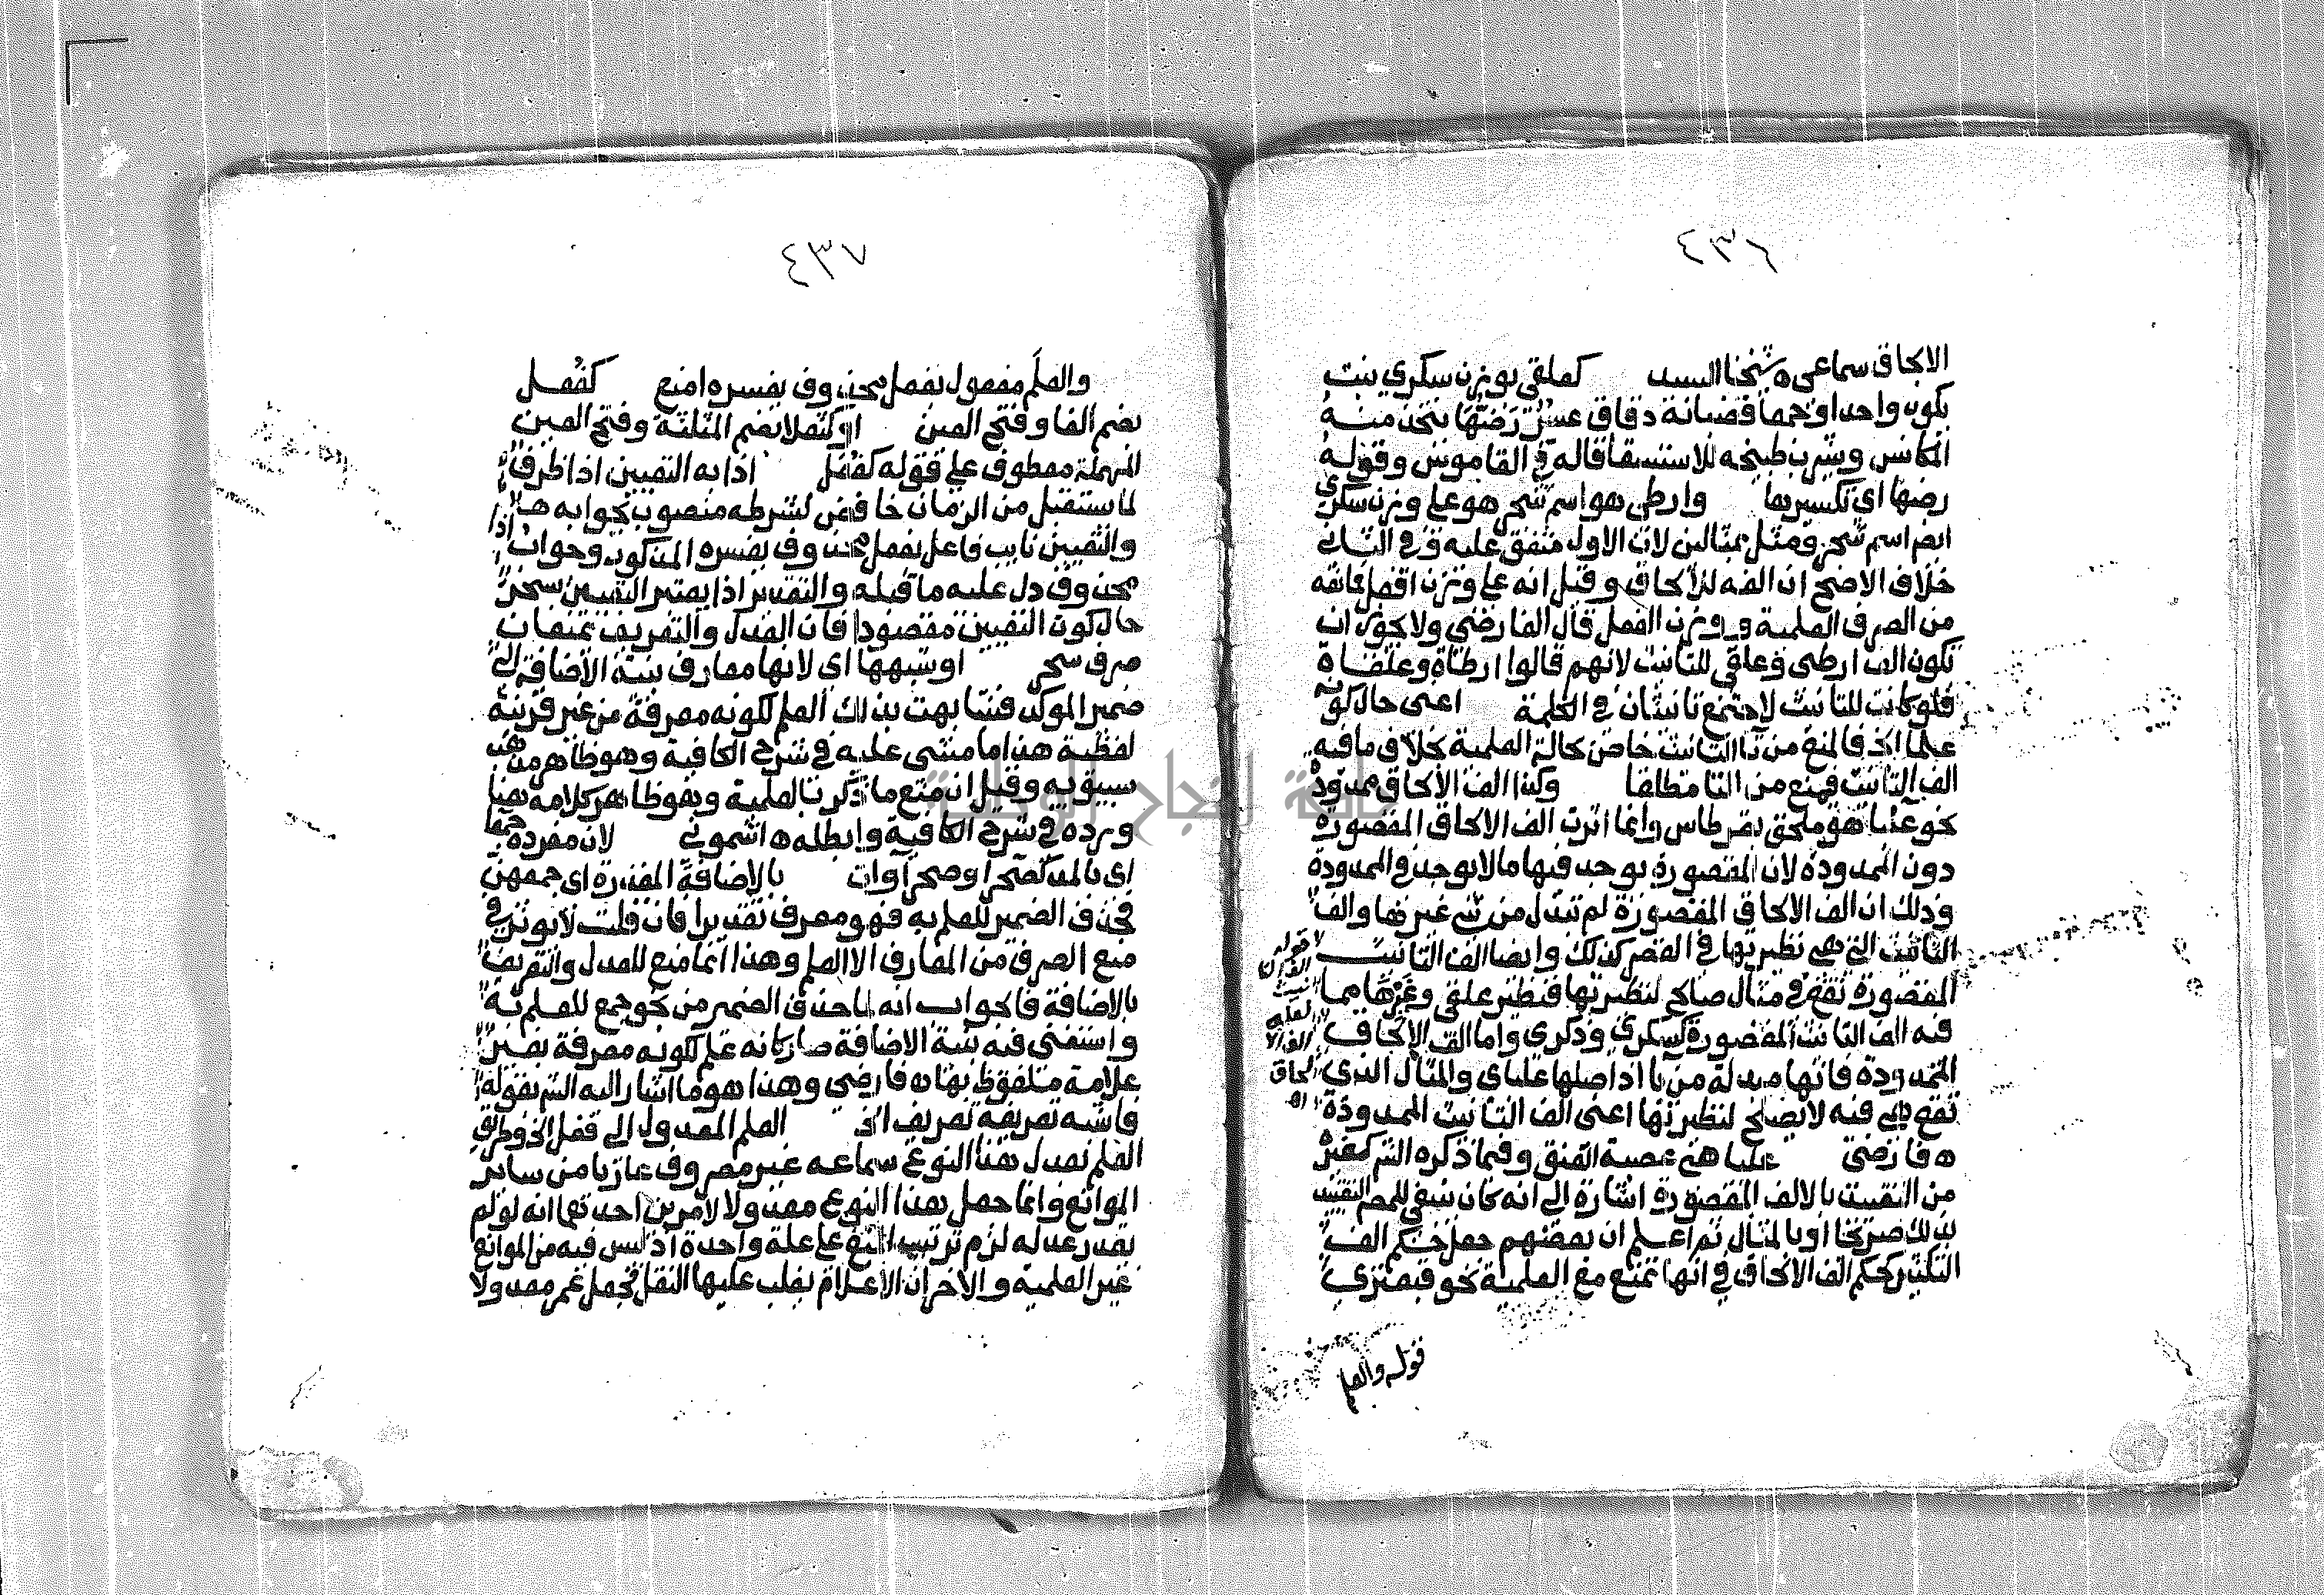 ٤٣٦
الالحاق سماعي ه شيخنا السيد كعلقى بوزن سكرى نبت
يكون واحدا وجمعا قضبانه دقاق عسر رضها يتخذ منه
المكانس ويشرب طبيخه للاستسقا قاله في القاموس وقوله
رضها اي تكسيرها وارطى هو اسم شجر هو على وزن سكرى
ايضا اسم شجر ومثل بمثالين لان الاول متفق عليه وفي الثاني
خلاف الاصح ان الفه للالحاق وقيل انه على وزن افعل فمانعه
من الصرف العلمية ووزن الفعل قال الفارضي ولا يجوز ان
تكون الف ارطى وعلقى للتانيث لانهم قالوا ارطاة وعلقاة
فلو كانت للتانيث لاجتمع تانيثان في الكلمة اعني حال كونه
علما الخ فالمنع من تا التانيث خاص بحالة العلمية بخلاف ما فيه
الف التانيث فيمنع من التا مطلقا وكذا الف الالحاق ممدودة
نحو علبا هو ملحق بقرطاس وانما اثرت الف الالحاق المقصورة
دون الممدودة لان المقصورة يوجد فيها ما لا يوجد في الممدودة
وذلك ان الف الالحاق المقصورة لم تبدل من شي غيرها والف
التانيث التي هي نظيرتها في القصر كذلك وايضا الف التانيث
المقصورة تقع في مثال صالح لنظيرتها فنظير علقى وغيرها مما
فيه الف التانيث المقصورة كسكرى وذكرى واما الف الالحاق
الممدودة فانها مبدلة من يا اذ اصلها علباي والمثال الذي
تقع هي فيه لا يصلح لنظيرتها اعني الف التانيث الممدودة
ه فارضي علبا هي عصبة العنق وفيما ذكره الش كغيره
من التقييد بالالف المقصورة اشارة الى انه كان ينبغي للمص التقييد
بذلك صريحا او بالمثال ثم اعلم ان بعضهم جعل حكم الف
التكثير كحكم الف الالحاق في انها تمنع مع العلمية نحو قبعثرى
قوله والعلم
٤٣٧
والعلم مفعول بفعل محذوف يفسره امنع كفعل
بضم الفا وفتح العين او كثعلا بضم المثلثة وفتح العين
المهملة معطوف على قوله كفعل اذا به التعيين اذا ظرف
لما يستقبل من الزمان خافض لشرطه منصوب بجوابه
والتعيين نايب فاعل بفعل محذوف يفسره المذكور وجواب اذا
محذوف دل عليه ما قبله والتقدير اذا يعتبر التعيين سحر
حال كون التعيين مقصودا فان العدل والتعريف يمنعان
صرف سحر او شبهها اي لانها معارف بنية الاضافة الى
ضمير الموكد فشابهت بذلك العلم لكونه معرفة من غير قرينة
لفظية هذا ما مشى عليه في شرح الكافية وهو ظاهر مذهب
سيبويه وقيل ان منع ما ذكر بالعلمية وهو ظاهر كلامه هنا
ورده في شرح الكافية وابطله ه اشموني لان مفرده جمعا
اي بالمد كصحرا وصحراوات بالاضافة المقدرة اي جمعهن
فحذف الضمير للعلم به فهو معرف تقديرا فان قلت لا يوثر في
منع الصرف من المعارف الا العلم وهذا انما منع للعدل والتعريف
بالاضافة فالجواب انه لما حذف الضمير من نحو جمع للعلم به
واستغنى فيه بنية الاضافة صار كانه علم لكونه معرفة بغير
علامة متلفوظ بها ه فارضي وهذا هو ما اشار اليه الش بقوله
فاشبه تعريفه تعريف الخ العلم المعدول الى فعل الخ وطريق
العلم بعدل هذا النوع سماعه غير مصروف عاريا من ساير
الموانع وانما جعل هذا النوع معدولا لامرين احدهما انه لو لم
يقدر عدله لزم ترتيب المنع على علة واحدة اذ ليس فيه من الموانع
غير العلمية والاخر ان الاعلام يغلب عليها النقل فجعل عمر معدولا